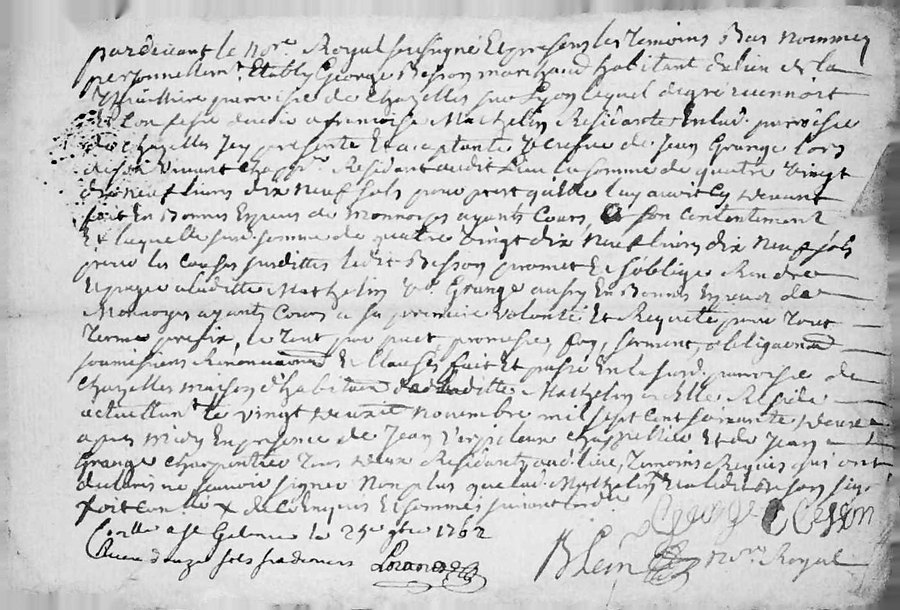 pardevant le no.re Royal soussigné Et presens les Temoins Bas nommez
personnellem.t Etably George Besson marchand habitant du lieu de la
paroisse de Chazelles sur Lyon lequel de gré reconnoit
Et confesse devoir a francoise Mathelin Residante en lad. paroisse
de Chazelles Icy presente Et aceptante Vefve de Jean Grange lors
vivant Residant audit Lieu la somme de quatre vingt
dix neuf livres dix neuf sols pour pret qu'elle luy avoit cy devant
fait En Bonnes Especes de Monnoyes ayants Cours, a son contentement
Et laquelle susd. somme de quatre vingt dix neuf livres dix neuf sols
pour les causes susdittes led.t Besson promet Et s'oblige Rendre
Et payer a laditte Mathelin V.e Grange aussy En Bonnes Especes de
Monnoyes ayants Cours a sa premiere volonté Et Requete pour tout
Terme prefix, le tout par pact, promesse, foy, serment, obligaon
soumissions Renonciaons Et Clauses fait Et passé En la susd. paroisse de
Chazelles maison d'habitaon de laditte Mathelin ou Elle Reside
actuellem.t le vingt deuxie novembre mil sept cent soixante deux
apres midy En presence de Jean chappellier Et de Jean
Grange charpentier Tous deux Residants aud. lieu, Temoins Requis qui ont
declares ne scavoir signer Non plus que lad. Mathelin Et led. Besson signé
de ce Enquis Et sommés suivant l'ord.e
George Besson
Con.lle a S.t Galmier le 25e 9bre 1762
Receu douze sols six deniers
Blein no.re Royal